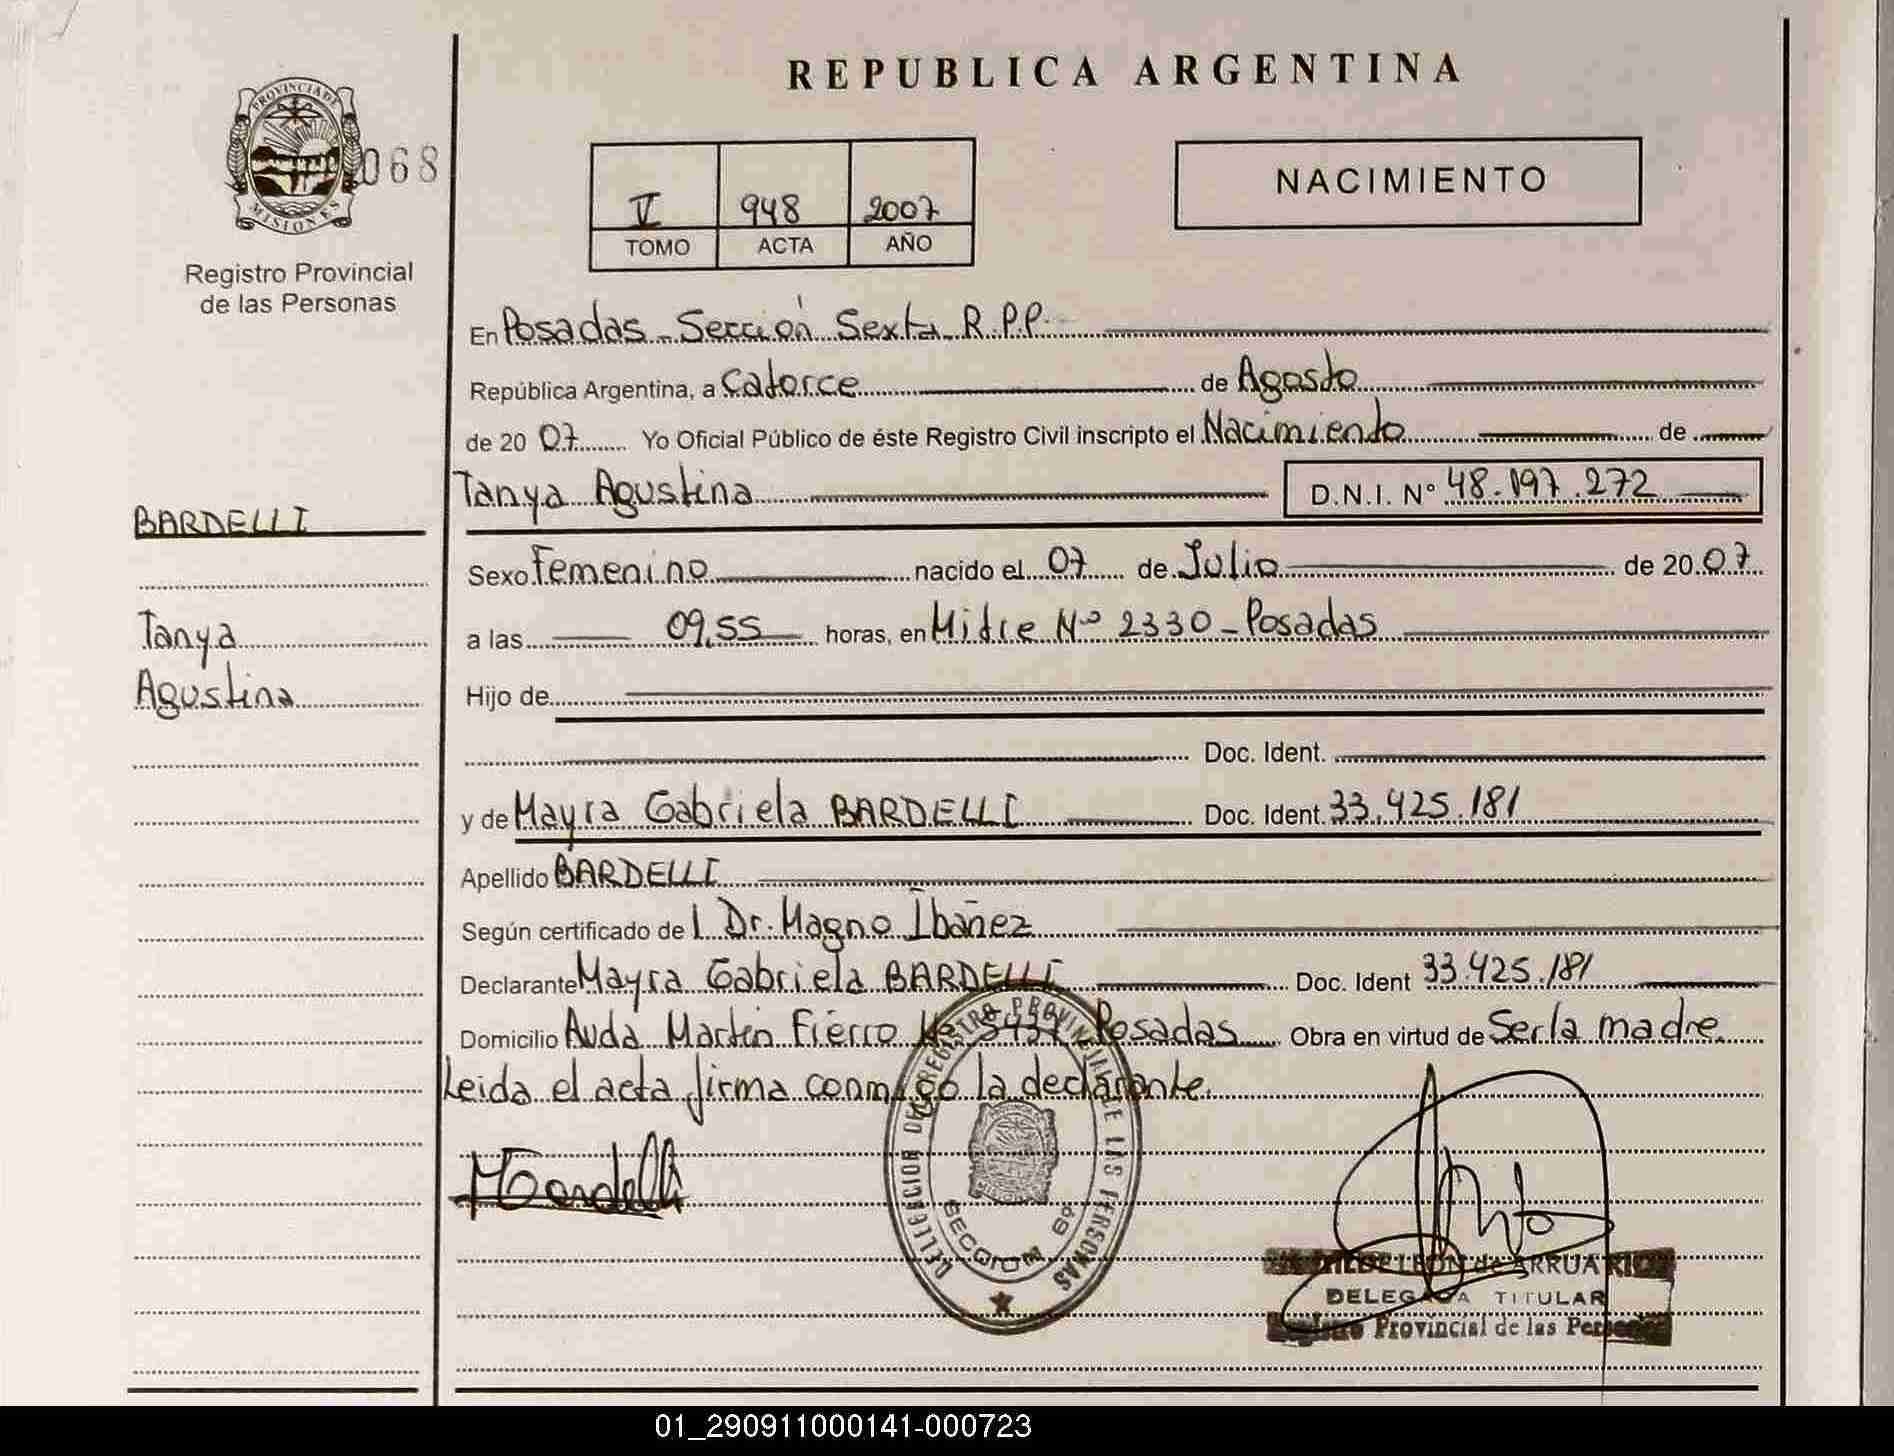 REPUBLICA ARGENTINA
PROVINCIA DE
MISIONES
068
Registro Provincial
de las Personas
V 948 2007
TOMO ACTA AÑO
NACIMIENTO
En Posadas - Sección Sexta R.P.P.
República Argentina, a Catorce de Agosto
de 20 07 Yo Oficial Público de éste Registro Civil inscripto el Nacimiento de
Tanya Agustina D.N.I. Nº 48.197.272
BARDELLI
Tanya
Agustina
Sexo Femenino nacido el 07 de Julio de 20 07
a las 09.55 horas, en Mitre Nº 2330 - Posadas
Hijo de
Doc. Ident.
y de Mayra Gabriela BARDELLI Doc. Ident. 33.425.181
Apellido BARDELLI
Según certificado de l Dr. Magno Ibañez
Declarante Mayra Gabriela BARDELLI Doc. Ident 33.425.181
Domicilio Avda Martin Fierro Nº Posadas Obra en virtud de Ser la madre.
Leida el acta firma conmigo la declarante.
DELEGACION DEL REGISTRO PROVINCIAL DE LAS PERSONAS
SECCION 6º
LEON de ARRUA
DELEGADA TITULAR
Registro Provincial de las Personas
01_290911000141-000723